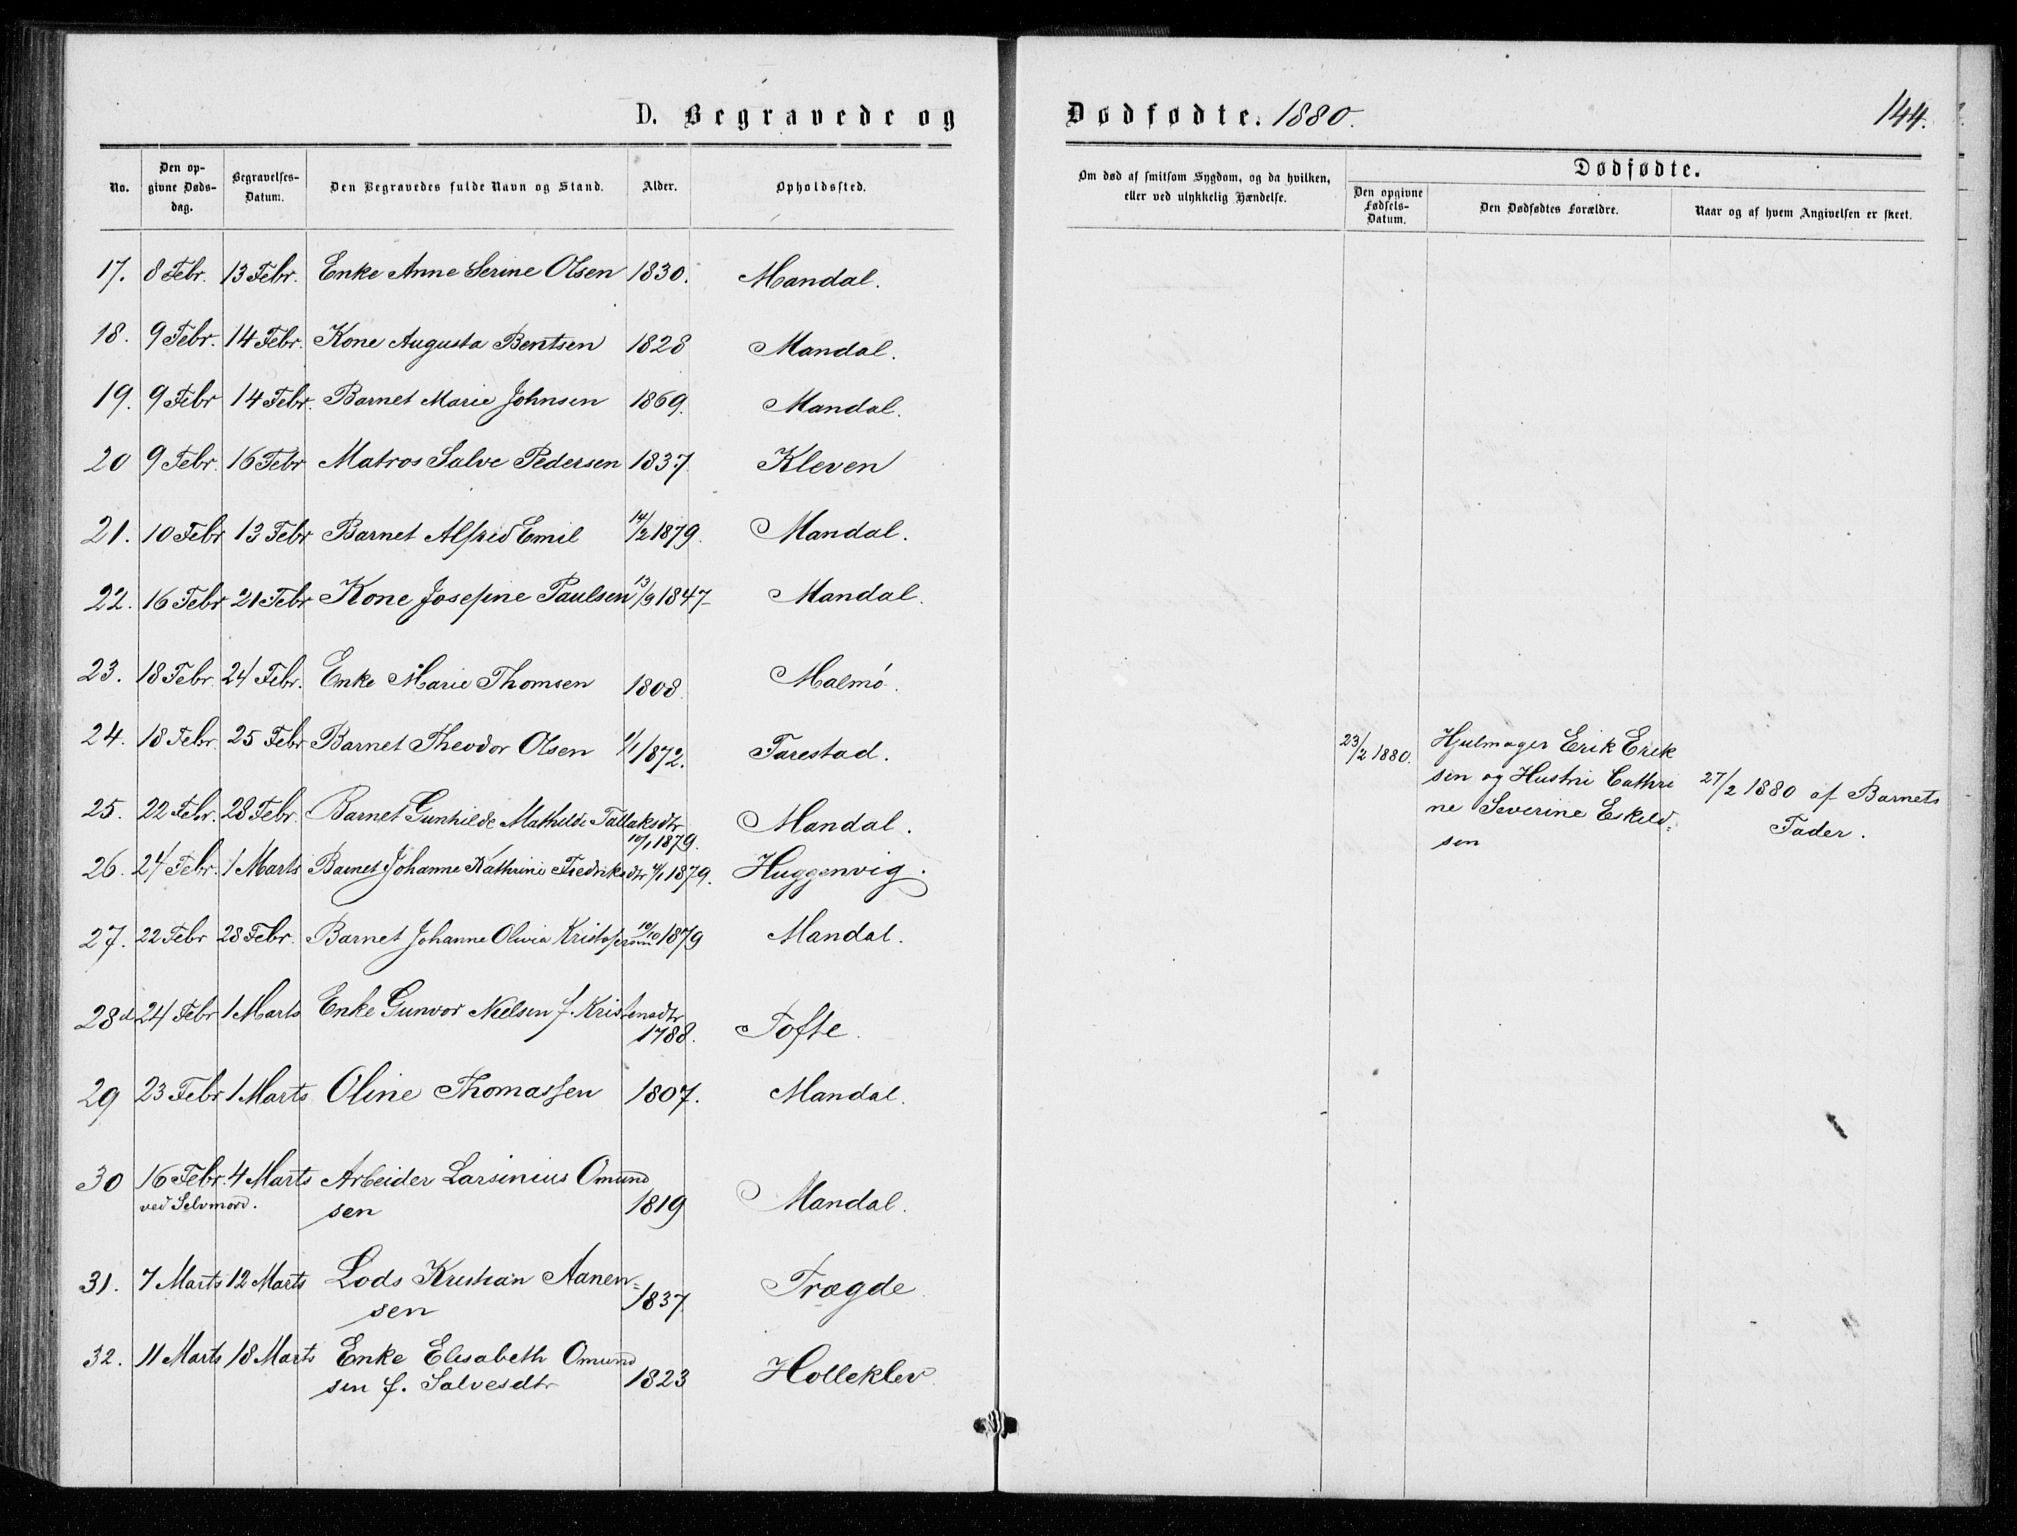 D. Begravede og Dødfødte. 1880. 144.
No. Den opgivne Døds-dag. Begravelses-Datum. Den Begravedes fulde Navn og Stand. Alder. Opholdssted.
Om død af smitsom Sygdom, og da hvilken, eller ved ulykkelig Hændelse.
Dødfødte.
Den opgivne Fødsels-Datum. Den Dødfødtes Forældre. Naar og af hvem Angivelsen er skeet.
17. 8 Febr. 13 Febr. Enke Anne Serine Olsen 1830. Mandal.
18. 9 Febr. 14 Febr. Kone Augusta Bentsen 1828 Mandal.
19. 9 Febr 14 Febr. Barnet Marie Johnsen 1869. Mandal.
20 9 Febr. 16 Febr Matros Salve Pedersen 1837. Kleven
21. 10 Febr 13 Febr Barnet Alfred Emil 14/2 1879. Mandal.
22. 16 Febr 21 Febr Kone Josefine Paulsen 13/9 1847 Mandal.
23. 18 Febr. 24 Febr. Enke Marie Thomsen 1808. Malmø.
24. 18 Febr. 25 Febr Barnet Theodor Olsen 1/1 1872. Tarestad.
25. 22 Febr. 28 Febr. Barnet Gunhilde Mathilde Tallaksdtr
10/1 1879. Mandal.
26. 24 Febr. 1 Marts Barnet Johanne Kathrine Fredriksdtr 4/1 1879. Huggenvig.
27. 22 Febr 28 Febr. Barnet Johanne Olivia Kristofersen 10/10 1879 Mandal.
28 d 24 Febr 1 Marts Enke Gunvor Nielsen f. Kristensdtr
1788. Tofte.
29 23 Febr 1 Marts Oline Thomassen 1807. Mandal.
30 16 Febr. 4 Marts Arbeider Larsinius Omund
ved Selvmord. sen 1819 Mandal.
31. 7 Marts 12 Marts Lods Kristian Aanen=
sen 1837. Trægde.
32. 11 Marts 18 Marts Enke Elisabeth Omund
sen f. Salvesdtr 1823 Holleklev.
23/2 1880. Hjulmager Erik Erik
sen og Hustru Cathri
ne Severine Eskild=
sen
27/2 1880 af Barnets
Fader.